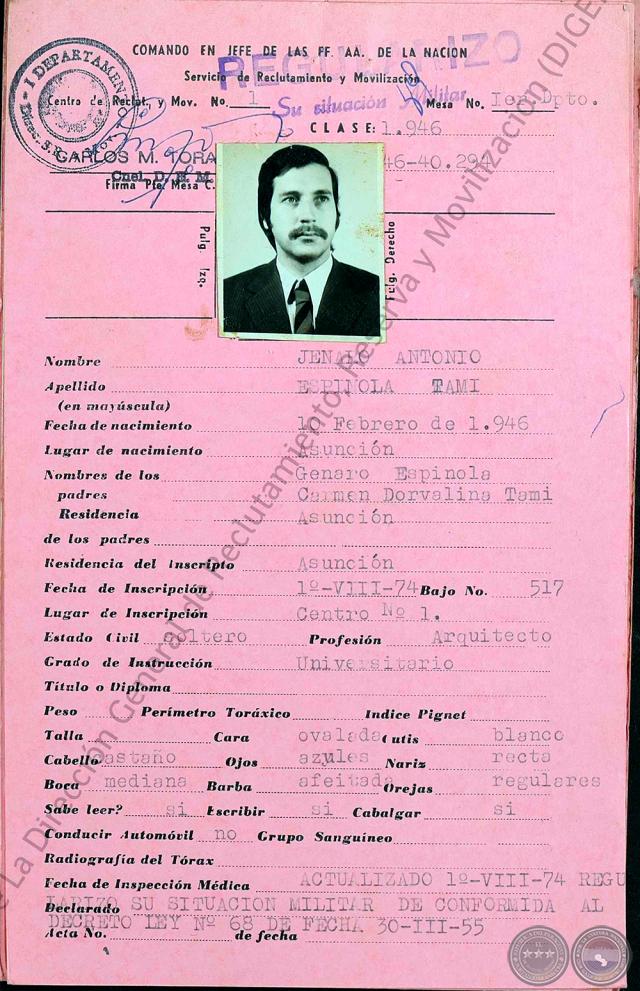 COMANDO EN JEFE DE LAS FF. AA. DE LA NACION
REGULARIZO
Servicio de Reclutamiento y Movilización
Su situación Militar
Centro de Reclut. y Mov. No. 1 Mesa No. Ier.Dpto.
I DEPARTAMENTO
CLASE: 1.946
CARLOS M. 46-40.294
Cnel. D. E. M.
Firma Pte. Mesa C.
Pulg. Izq.
Pulg. Derecho
Nombre JENARO ANTONIO
Apellido ESPINOLA TAMI
(en mayúscula)
Fecha de nacimiento Febrero de 1.946
Lugar de nacimiento Asunción
Nombres de los Genaro Espinola
padres Carmen Dorvalina Tami
Residencia Asunción
de los padres
Residencia del Inscripto Asunción
Fecha de Inscripción 1º-VIII-74 Bajo No. 517
Lugar de Inscripción Centro Nº 1.
Estado Civil soltero Profesión Arquitecto
Grado de Instrucción Universitario
Título o Diploma
Peso Perímetro Toráxico Indice Pignet
Talla Cara ovalada Cutis blanco
Cabello castaño Ojos azules Nariz recta
Boca mediana Barba afeitada Orejas regulares
Sabe leer? si Escribir si Cabalgar si
Conducir Automóvil no Grupo Sanguíneo
Radiografía del Tórax
Fecha de Inspección Médica ACTUALIZADO 1º-VIII-74 REGU
Declarado LARIZO SU SITUACION MILITAR DE CONFORMIDA AL
DECRETO LEY Nº 68 DE FECHA 30-III-55
Acta No. de fecha
La Dirección General de Reclutamiento, Reserva y Movilización (DIGE